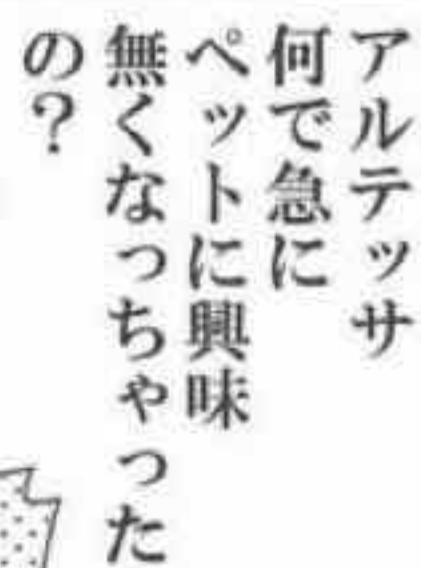 アルテッサ
何で急に
ペットに興味
無くなっちゃった
の？